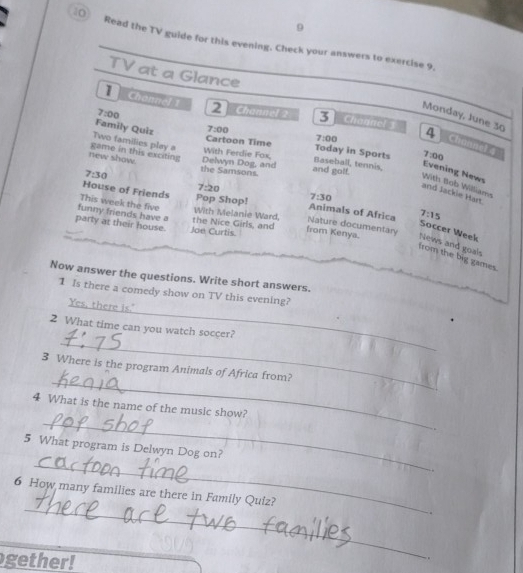 9
10 Read the TV guide for this evening. Check your answers to exercise 9.
TV at a Glance
Monday, June 30
1 Channel 1
7:00
Family Quiz
Two families play a
game in this exciting
new show.
7:30
House of Friends
This week the five
funny friends have a
party at their house.
2 Channel 2
7:00
Cartoon Time
With Ferdie Fox,
Delwyn Dog, and
the Samsons.
7:20
Pop Shop!
With Melanie Ward,
the Nice Girls, and
Joe Curtis.
3 Channel 3
7:00
Today in Sports
Baseball, tennis,
and golf.
7:30
Animals of Africa
Nature documentary
from Kenya.
4 Channel 4
7:00
Evening News
With Bob Williams
and Jackie Hart.
7:15
Soccer Week
News and goals
from the big games.
Now answer the questions. Write short answers.
1 Is there a comedy show on TV this evening?
Yes, there is.
2 What time can you watch soccer?
7:15
3 Where is the program Animals of Africa from?
kenia
4 What is the name of the music show?
pop shop
5 What program is Delwyn Dog on?
cartoon time
6 How many families are there in Family Quiz?
there are two families
gether!